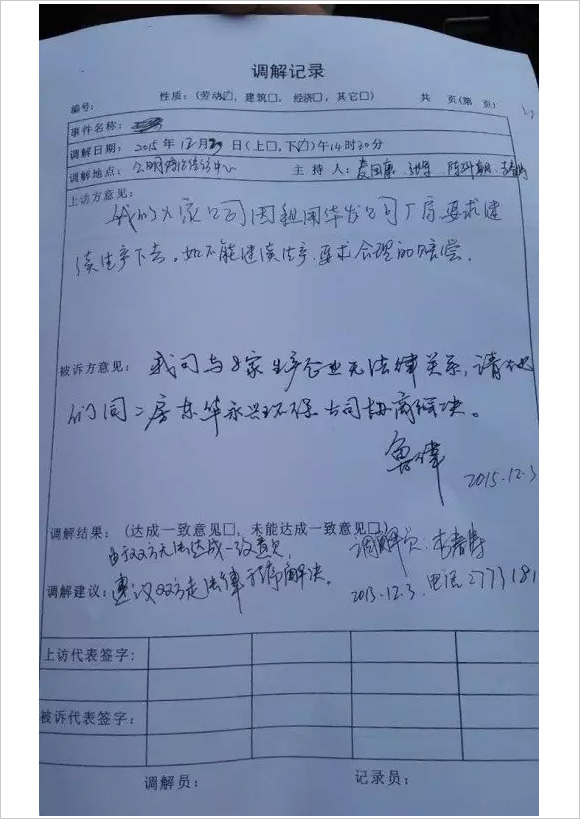 调解记录
编号： 性质：（劳动☑，建筑口，经济口，其它口） 共 页（第 页）
事件名称：
调解日期： 2015年12月3日（上口，下☑）午14时30分
调解地点： 公明 中心 主 持 人：
上访方意见：
我们八家公司因租用华发公司厂房要求继
续生产下去。如不能继续生产，要求合理的赔尝.
被诉方意见： 我司与8家生产企业无法律关系，请他
们同二房东华永兴环保公司协商解决。
2015.12.3
调解结果：（达成一致意见口，未能达成一致意见口）
由于双方无法达成一致意见， 调解员：李春
调解建议： 建议双方走法律程序解决。 2015.12.3. 电话2773181
上访代表签字：
被诉代表签字：
调解员： 记录员：